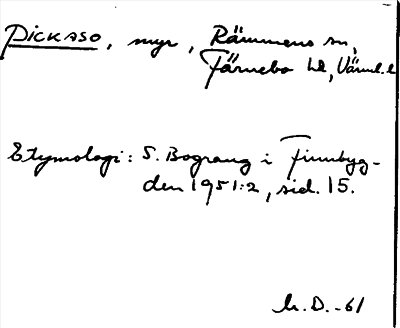 PICKASO, myr, Rämmens sn,
Färnebo hd, Värml. l
Etymologi: S. Bograng i Finnbyg-
den 1951:2, sid. 15.
h. D. -61